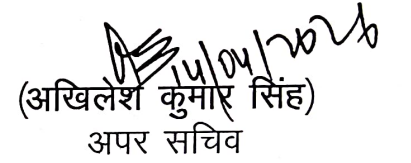 14/04/2026
(अखिलेश कुमार सिंह)
अपर सचिव